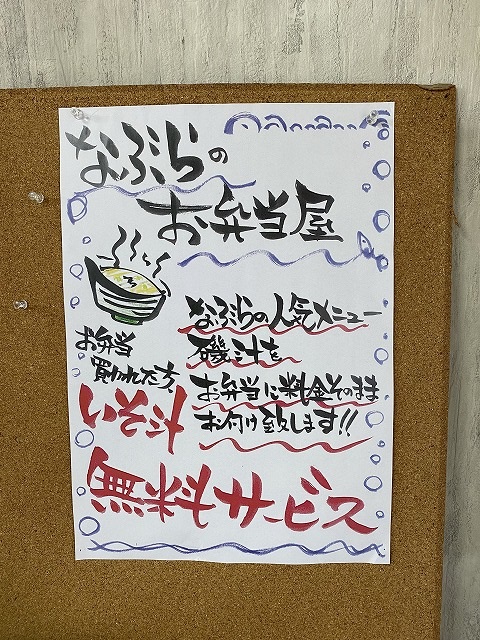 なぶらの
お弁当屋
なぶらの人気メニュー
磯汁を
お弁当に料金そのまま
お付け致します!!
お弁当
買われた方
いそ汁
無料サービス